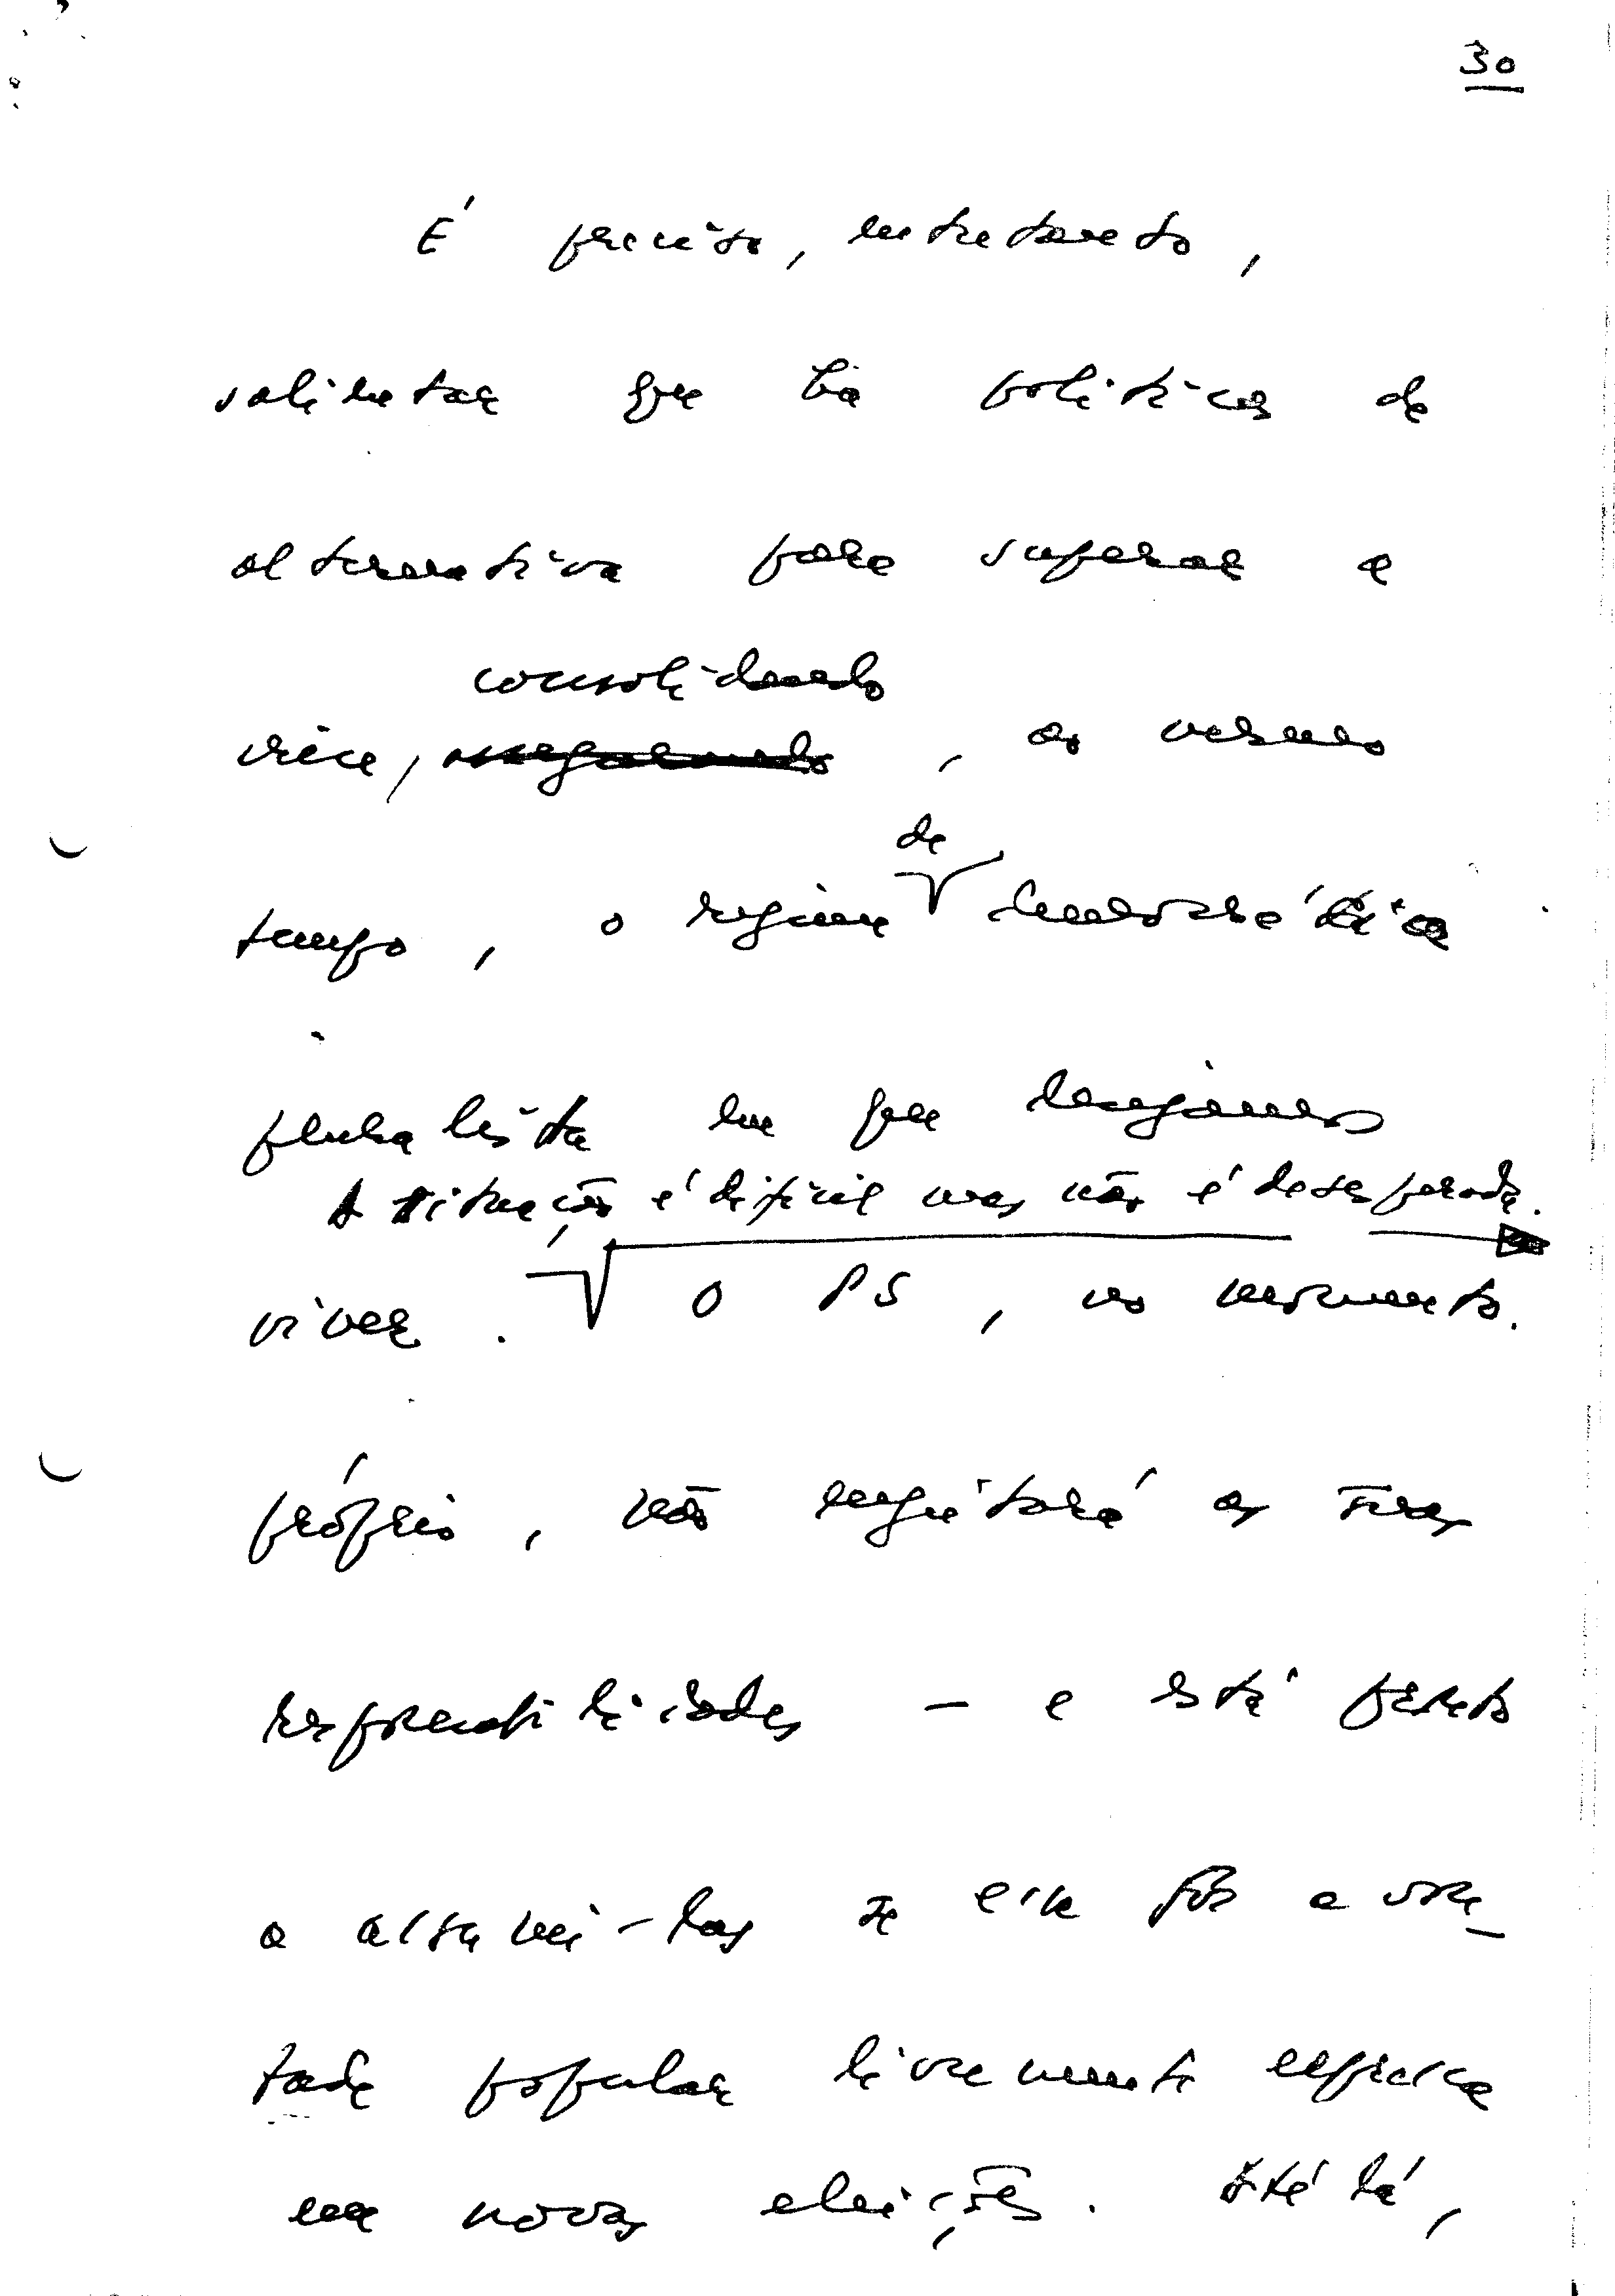 30
É preciso, entretanto,
salientar que há políticas de
alternativa para superar a
consolidando
crise, assegurando, ao mesmo
de
tempo, o regime democrática
pluralista em que desejamos
A situação é difícil mas não é desesperada.
viver. O PS, no momento.
próprio, não enjeitará as suas
responsabilidades — e está pronto
a assumi-las se essa fôr a von-
tade popular livremente expressa
em novas eleições. Até lá,